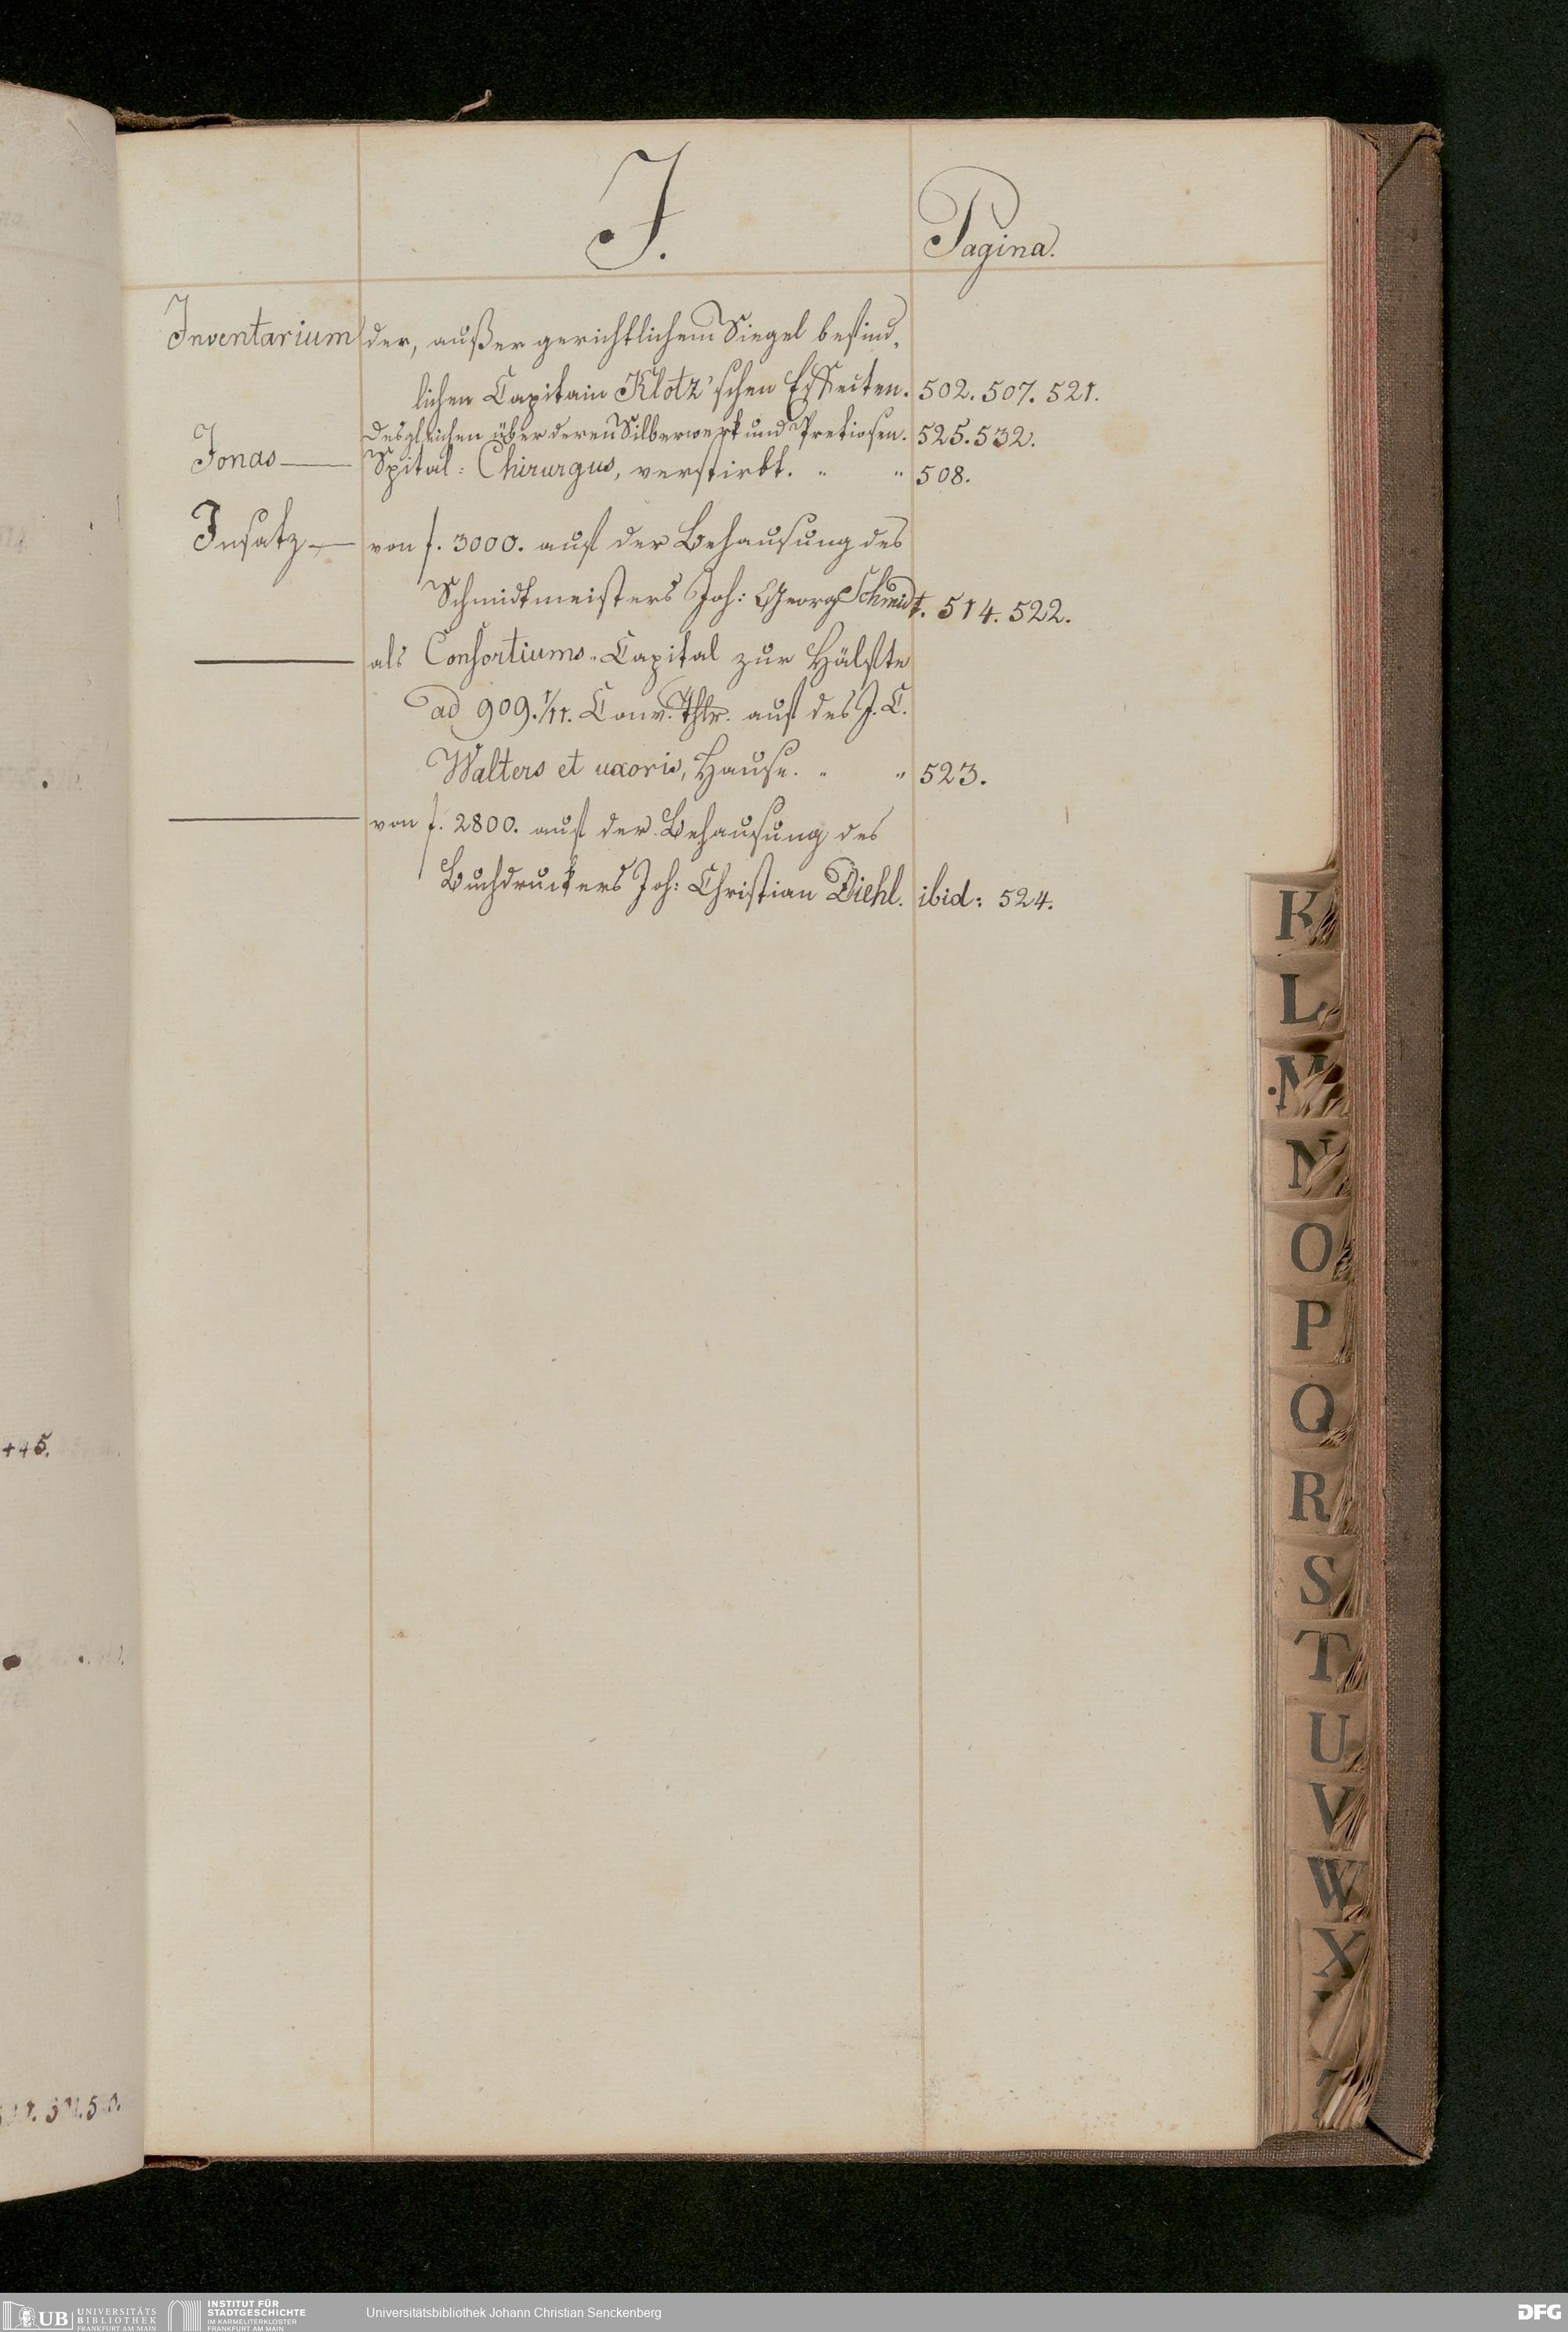 J.
Pagina.
Inventarium der, außer gerichtlichem Siegel befind-
lichen Capitain Klotz'schen Effecten. 502. 507. 521.
desgleichen über deren Silberwerk und Pretiosen. 525. 532.
Jonas — Spital-Chirurgus, verstirbt. " " 508.
Insatz — von f. 3000. auf der Behausung des
Schmidtmeisters Joh: Georg Schmidt. 514. 522.
— als Consortiums-Capital zur Hälfte
ad 909. 1/11. Conv. Thlr. auf des J. C.
Walters et uxoris, Hause. " " 523.
— von f. 2800. auf der Behausung des
Buchdruckers Joh: Christian Diehl. ibid: 524.
K
L
M
N
O
P
Q
R
S
T
U
V
W
X
UB UNIVERSITÄTS
BIBLIOTHEK
FRANKFURT AM MAIN
INSTITUT FÜR
STADTGESCHICHTE
IM KARMELITERKLOSTER
FRANKFURT AM MAIN
Universitätsbibliothek Johann Christian Senckenberg
DFG